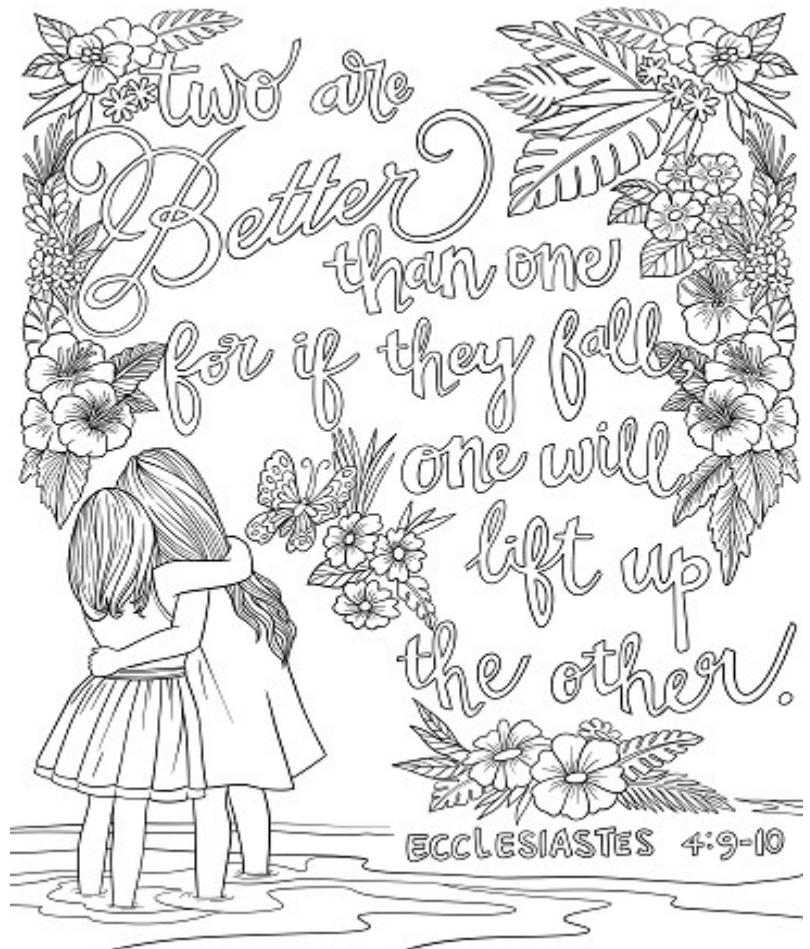 two are
Better
than one
for if they fall,
one will
lift up
the other.
ECCLESIASTES 4:9-10